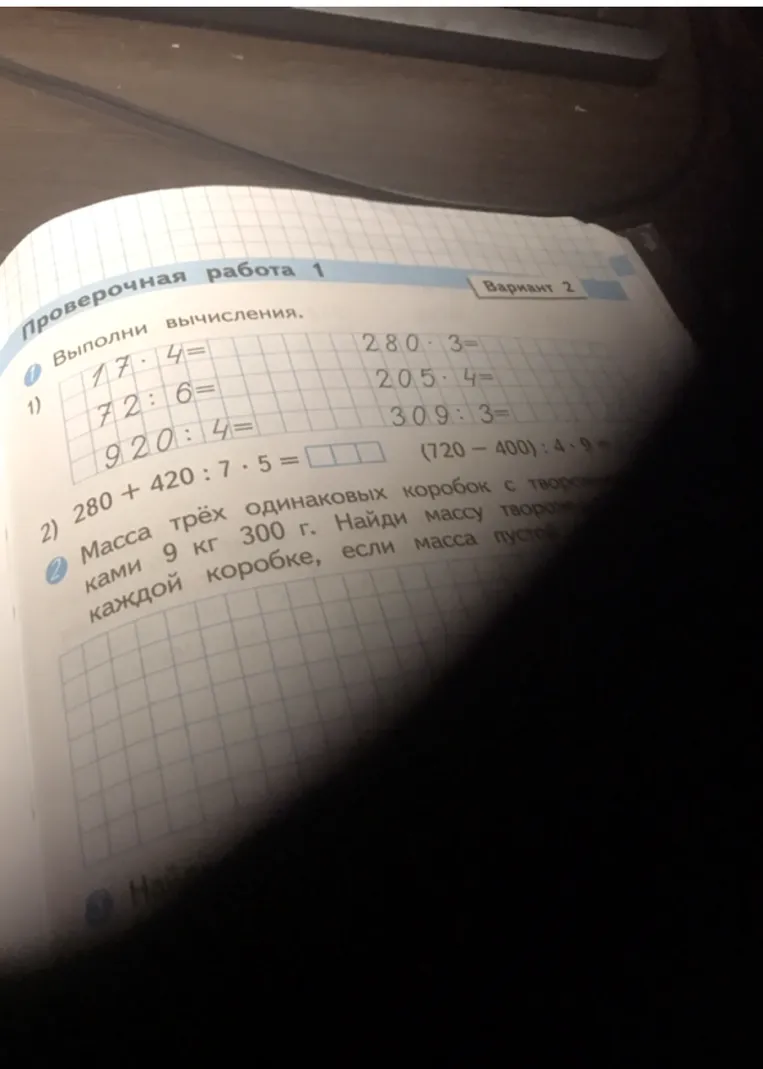 Проверочная работа 1
Вариант 2
1 Выполни вычисления.
1) 17 · 4= 280 · 3=
72 : 6= 205 · 4=
920 : 4= 309 : 3=
2) 280 + 420 : 7 · 5 = (720 − 400) : 4 · 9 =
2 Масса трёх одинаковых коробок с
ками 9 кг 300 г. Найди массу
каждой коробке, если масса